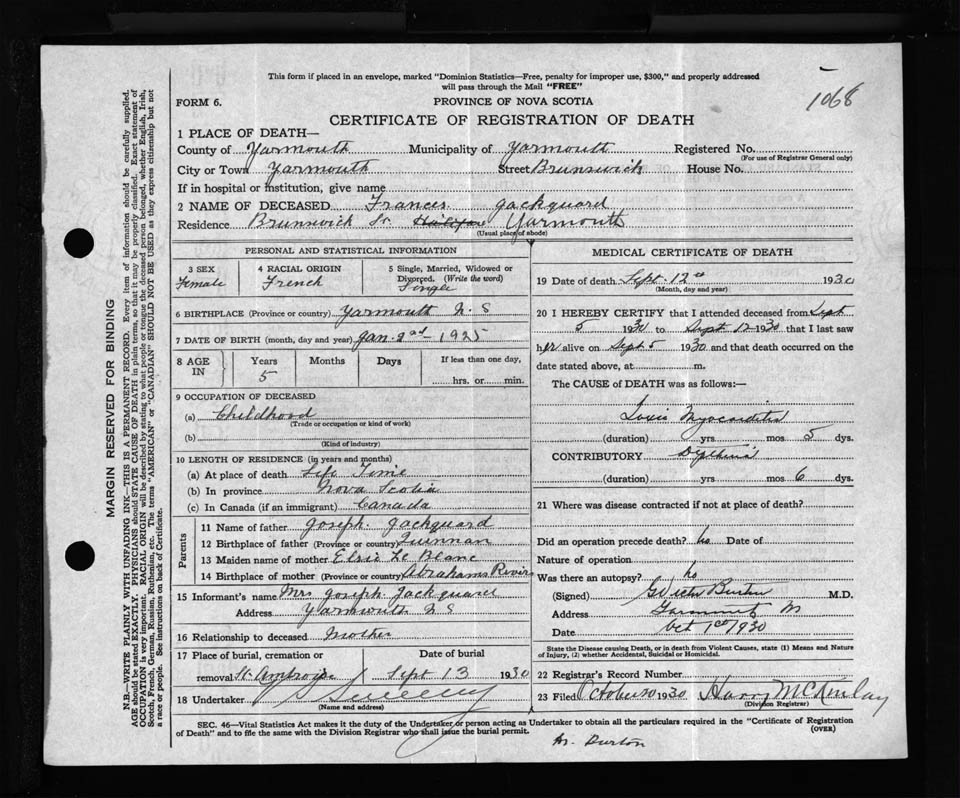 This form if placed in an envelope, marked "Dominion Statistics—Free, penalty for improper use, $300," and properly addressed
will pass through the Mail "FREE"
1068
FORM 6.
PROVINCE OF NOVA SCOTIA
CERTIFICATE OF REGISTRATION OF DEATH
1 PLACE OF DEATH—
County of Yarmouth Municipality of Yarmouth Registered No.
(For use of Registrar General only)
City or Town Yarmouth Street Brunswick House No.
If in hospital or institution, give name
2 NAME OF DECEASED Frances Jackquard
Residence Brunswick St. Halifax Yarmouth
(Usual place of abode)
PERSONAL AND STATISTICAL INFORMATION
3 SEX 4 RACIAL ORIGIN 5 Single, Married, Widowed or
Divorced. (Write the word)
Female French Single
6 BIRTHPLACE (Province or country) Yarmouth N. S
7 DATE OF BIRTH (month, day and year) Jan. 2nd - 1925
8 AGE IN Years Months Days If less than one day,
5 hrs. or min.
9 OCCUPATION OF DECEASED
(a) Childhood
(Trade or occupation or kind of work)
(b)
(Kind of industry)
10 LENGTH OF RESIDENCE (in years and months)
(a) At place of death Life Time
(b) In province Nova Scotia
(c) In Canada (if an immigrant) Canada
Parents
11 Name of father Joseph. Jackquard
12 Birthplace of father (Province or country) Quinnan
13 Maiden name of mother Elsie Le Blanc
14 Birthplace of mother (Province or country) Abrahams River
15 Informant's name Mrs Joseph Jackquard
Address Yarmouth N S
16 Relationship to deceased Mother
17 Place of burial, cremation or Date of burial
removal St. Ambroise Sept 13 1930
18 Undertaker Sweeny
(Name and address)
MEDICAL CERTIFICATE OF DEATH
19 Date of death Sept. 12th 1930
(Month, day and year)
20 I HEREBY CERTIFY that I attended deceased from Sept
5 1930 to Sept 12 1930 that I last saw
her alive on Sept 5 1930 and that death occurred on the
date stated above, at m.
The CAUSE of DEATH was as follows:—
Toxic Myocarditis
(duration) yrs. mos 5 dys.
CONTRIBUTORY Diptheria
(duration) yrs mos 6 dys.
21 Where was disease contracted if not at place of death?
Did an operation precede death? no Date of
Nature of operation
Was there an autopsy? no
(Signed) Burton M.D.
Address Yarmouth NS
Date Oct 1st 1930
State the Disease causing Death, or in death from Violent Causes, state (1) Means and Nature
of Injury, (2) whether Accidental, Suicidal or Homicidal.
22 Registrar's Record Number
23 Filed October 10 1930 Harry McKinlay
(Division Registrar)
SEC. 46—Vital Statistics Act makes it the duty of the Undertaker or person acting as Undertaker to obtain all the particulars required in the "Certificate of Registration
of Death" and to file the same with the Division Registrar who shall issue the burial permit.
(OVER)
Burton
MARGIN RESERVED FOR BINDING
N.B.—WRITE PLAINLY WITH UNFADING INK—THIS IS A PERMANENT RECORD. Every item of information should be carefully supplied.
AGE should be stated EXACTLY. PHYSICIANS should STATE CAUSE OF DEATH in plain terms, so that it may be properly classified. Exact statement of
OCCUPATION is very important. RACIAL ORIGIN will be described by stating to what people or tongue the deceased person belonged, whether English, Irish,
Scotch, French, German, Russian, Ruthenian, etc. The terms "AMERICAN" or "CANADIAN" SHOULD NOT BE USED as they express citizenship but not
a race or people. See instructions on back of Certificate.